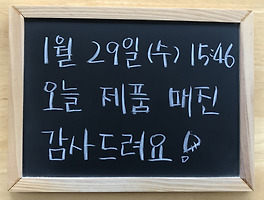 1월 29일 (수) 15:46
오늘 제품 매진
감사드려요!